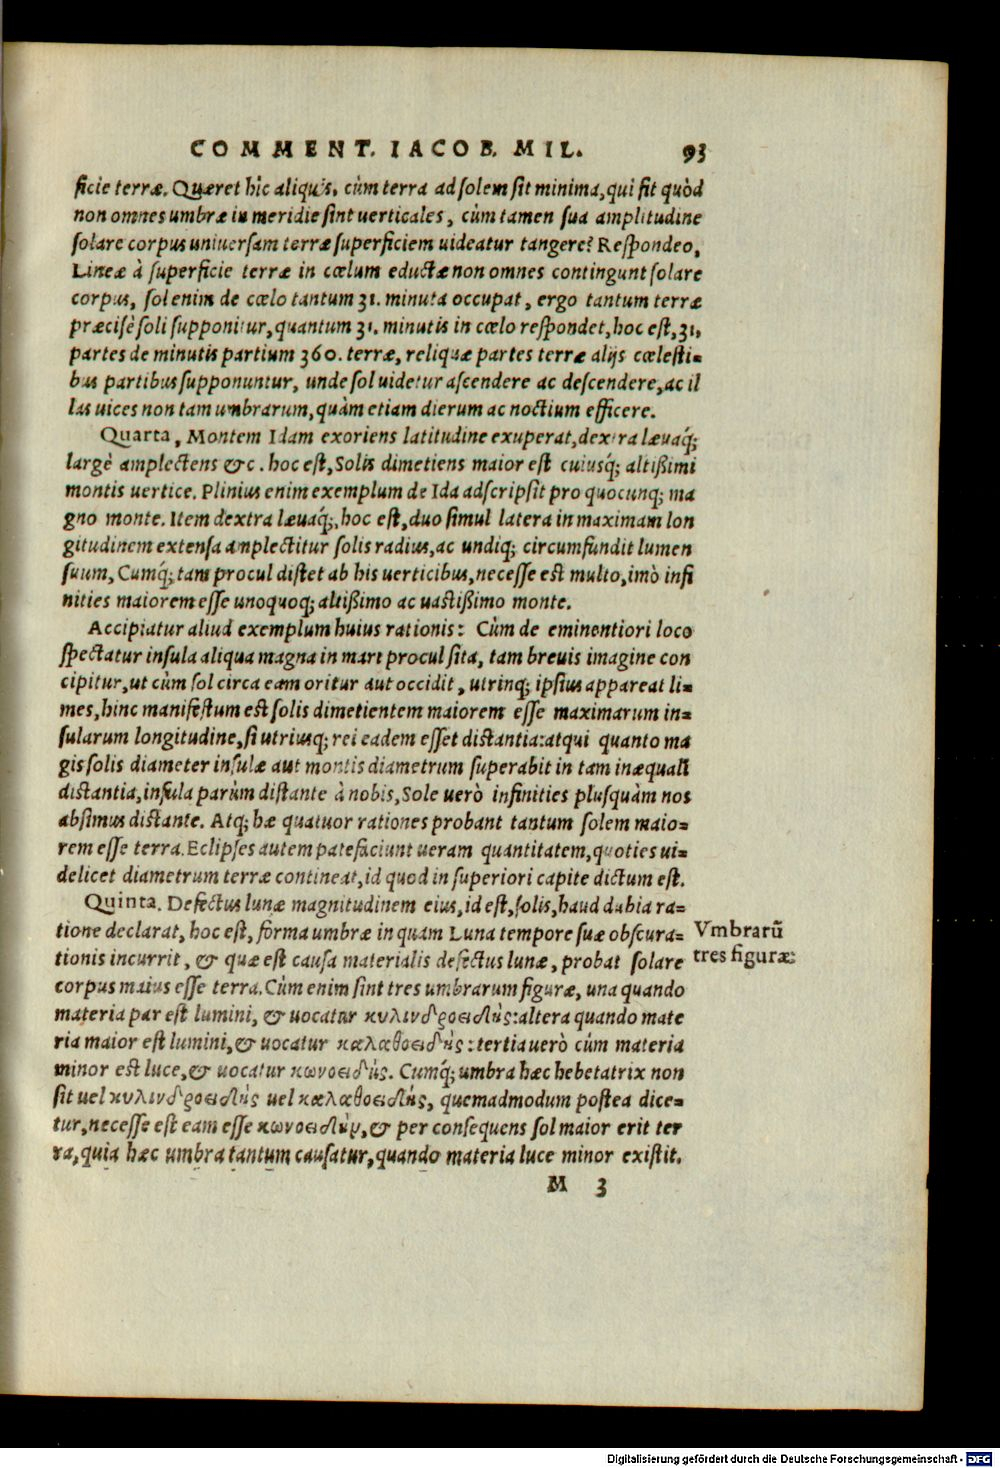 COMMENT. IACOB. MIL. 93
ficie terræ. Quæret hîc aliquis, cùm terra ad solem sit minima, qui fit quòd
non omnes umbræ in meridie sint uerticales, cùm tamen sua amplitudine
solare corpus uniuersam terræ superficiem uideatur tangere? Respondeo,
Lineæ à superficie terræ in cœlum eductæ non omnes contingunt solare
corpus, sol enim de cœlo tantum 31. minuta occupat, ergo tantum terræ
præcisè soli supponitur, quantum 31. minutis in cœlo respondet, hoc est, 31,
partes de minutis partium 360. terræ, reliquæ partes terræ alijs cœlesti=
bus partibus supponuntur, unde sol uidetur ascendere ac descendere, ac il
las uices non tam umbrarum, quàm etiam dierum ac noctium efficere.
Quarta, Montem Idam exoriens latitudine exuperat, dextra læuaq́;
largè amplectens &c. hoc est, Solis dimetiens maior est cuiusq́; altißimi
montis uertice. Plinius enim exemplum de Ida adscripsit pro quocunq; ma
gno monte. Item dextra læuaq́;, hoc est, duo simul latera in maximam lon
gitudinem extensa amplectitur solis radius, ac undiq; circumfundit lumen
suum, Cumq́; tam procul distet ab his uerticibus, necesse est multo, imò infi
nities maiorem esse unoquoq; altißimo ac uastißimo monte.
Accipiatur aliud exemplum huius rationis: Cùm de eminentiori loco
spectatur insula aliqua magna in mari procul sita, tam breuis imagine con
cipitur, ut cùm sol circa eam oritur aut occidit, utrinq; ipsius appareat li=
mes, hinc manifestum est solis dimetientem maiorem esse maximarum in=
sularum longitudine, si utriusq; rei eadem esset distantia: atqui quanto ma
gis solis diameter insulæ aut montis diametrum superabit in tam inæquali
distantia, insula parùm distante à nobis, Sole uerò infinities plusquàm nos
absimus distante. Atq; hæ quatuor rationes probant tantum solem maio=
rem esse terra. Eclipses autem patefaciunt ueram quantitatem, quoties ui=
delicet diametrum terræ contineat, id quod in superiori capite dictum est.
Quinta. Defectus lunæ magnitudinem eius, id est, solis, haud dubia ra=
tione declarat, hoc est, forma umbræ in quam Luna tempore suæ obscura=
tionis incurrit, & quæ est causa materialis defectus lunæ, probat solare
corpus maius esse terra. Cùm enim sint tres umbrarum figuræ, una quando
materia par est lumini, & uocatur κυλινδροειδὴς: altera quando mate
ria maior est lumini, & uocatur καλαθοειδὴς: tertia uerò cùm materia
minor est luce, & uocatur κωνοειδὴς. Cumq́; umbra hæc hebetatrix non
sit uel κυλινδροειδὴς uel καλαθοειδὴς, quemadmodum postea dice=
tur, necesse est eam esse κωνοειδὴν, & per consequens sol maior erit ter
ra, quia hæc umbra tantum causatur, quando materia luce minor existit.
Vmbrarū
tres figuræ:
M 3
Digitalisierung gefördert durch die Deutsche Forschungsgemeinschaft - DFG